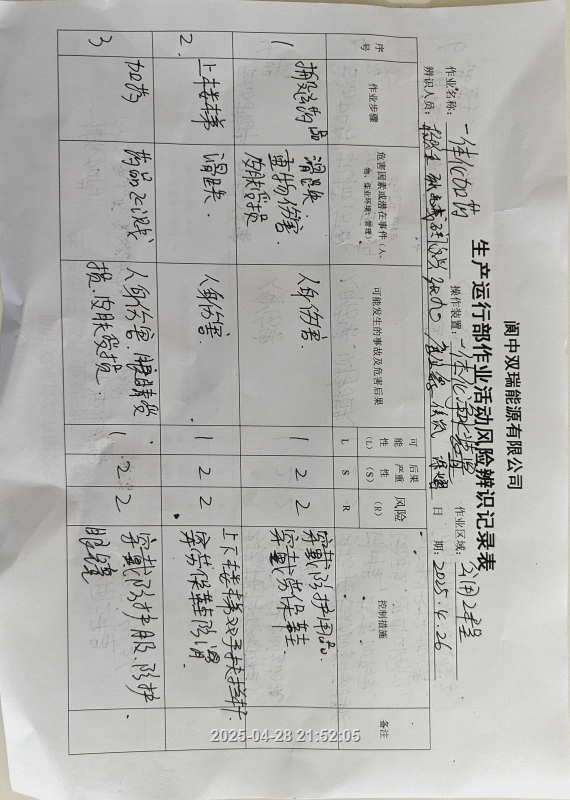 阆中双瑞能源有限公司
生产运行部作业活动风险辨识记录表
作业名称: 一体化加药 操作装置: 一体化净水装置 作业区域: 公用工程
辨识人员: 日 期: 2025.4.26
序号 作业步骤 危害因素或潜在事件(人、物、作业环境、管理) 可能发生的事故及危害后果 可能性(L) 后果严重性(S) 风险(R) 控制措施 备注
L S R
1 搬运药品 滑跌. 重物伤害. 皮肤受损 人身伤害. 1 2 2 穿戴防护用品. 穿戴劳保鞋
2. 上楼梯 滑跌. 人身伤害. 1 2 2 上下楼梯双手扶栏杆. 穿劳保鞋防滑
3 加药 药品飞溅 人身伤害 眼睛受损. 皮肤受损. 1 2 2 穿戴防护服. 防护眼镜
2025-04-28 21:52:05